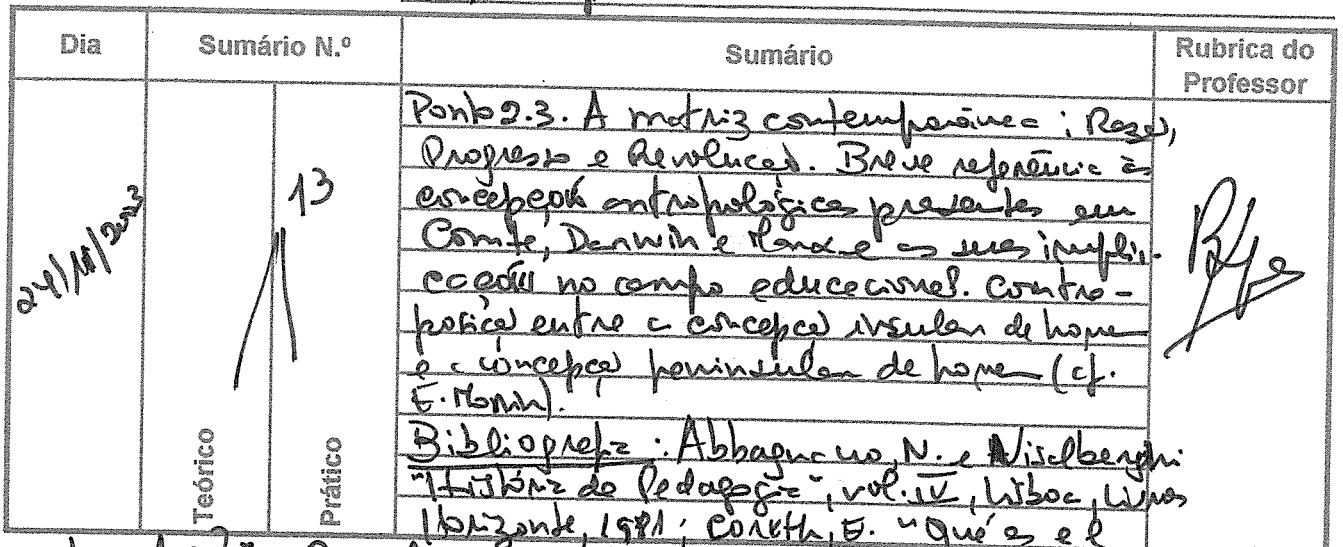 Dia
Sumário N.º
Sumário
Rubrica do
Professor
24/11/2003
13
Teórico
Prático
Ponto 2.3. A matriz contemporânea: Razão,
Progresso e Revolução. Breve referência às
concepções antropológicas presentes em
Comte, Darwin e Marx e as suas impli-
cações no campo educacional. Contra-
posição entre a concepção insular de homem
e a concepção peninsular de homem (cf.
E. Morin).
Bibliografia: Abbagnano, N. e Visalberghi
"História da Pedagogia", vol. IV, Lisboa, Livros
Horizonte, 1981; Coreth, E. "Qué es el